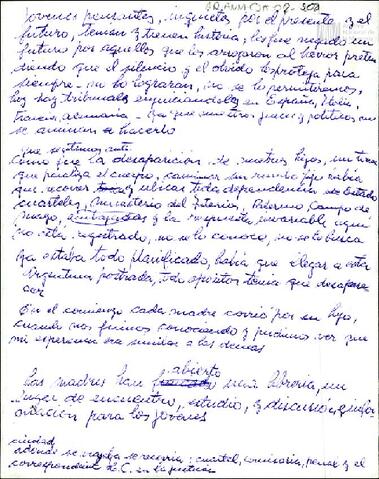 jóvenes pensantes, inquietos por el presente y el
futuro, tenían y tienen historia; les fue negado un
futuro por aquellos que los arrojaron al horror preten
diendo que el silencio y el olvido los proteja para
siempre - no lo lograran, no se lo permitiremos,
hoy hay tribunales enjuiciandoles en España, Italia,
Francia, Alemania - ya que nuestros jueces y políticos no
se animan a hacerlo
que sentimos ante
Como fue la desaparición de nuestros hijos, un
que paraliza el cuerpo, caminar sin rumbo fijo había
que recorrer y ubicar toda dependencia de Estado
cuarteles, ministerio del Interior, Campo de
Mayo, y la respuesta invariable aquí
no está registrado, no se lo conoce, no se lo busca
ya estaba todo planificado, había que llegar a esta
Argentina postrada, todo opositor tenía que desapare
cer
En el comienzo cada madre corrió por su hijo,
cuando nos fuimos conociendo y pudimos ver que
mi experiencia era similar a las demas
abierto
Las madres han una librería, un
lugar de encuentro, estudio, y discusión, y
para los jóvenes
ciudad
adonde se recurrir: cuartel, comisaría, penal y el
correspondiente H.C. en la justicia